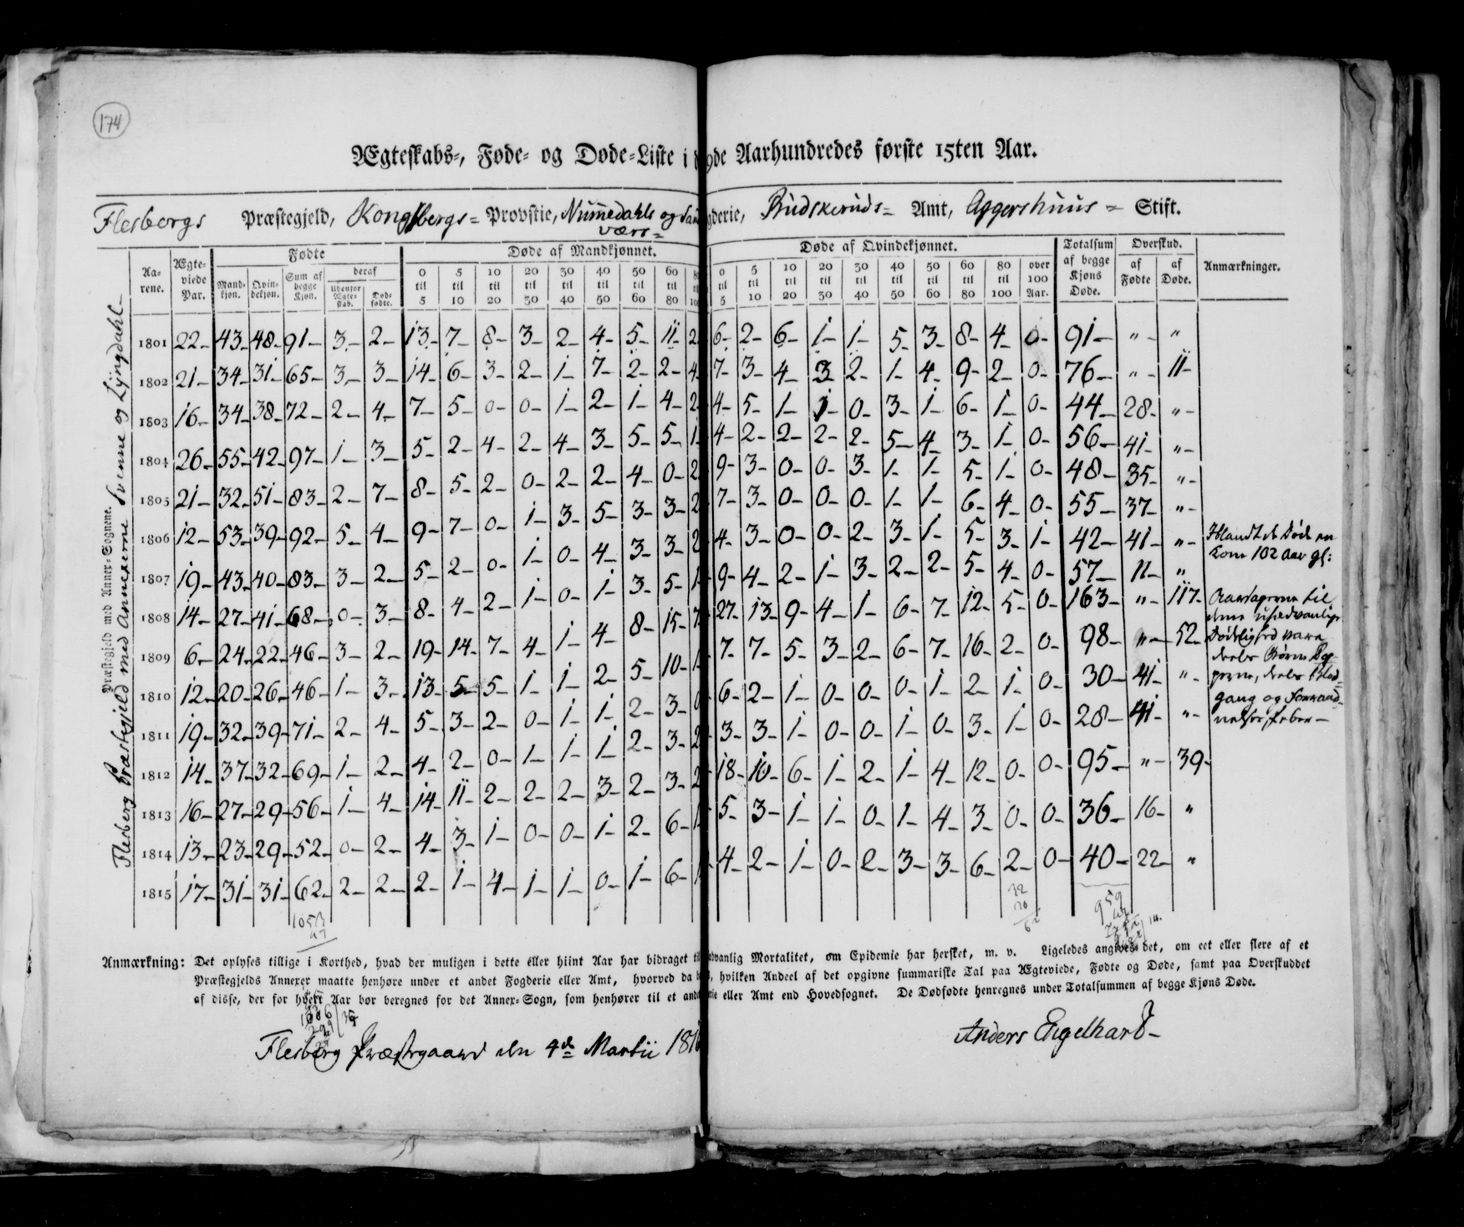 174
Ægteskabs-, Føde- og Døde-Liste i de Aarhundredes første 15ten Aar.
Flesborgs Præstegjeld, Kongsbergs= Provstie, Nummedahls og gderie, Budskeruds= Amt, Aggershuus= Stift.
Præstegjeld med Annex-Sognene.
Flesberg Præstegjeld med Annexerne Svenne og Lyngdahl
Aarene. Ægteviede Par. Fødte Døde af Mandkjønnet. Døde af Qvindekjønnet. Totalsum af begge Kjøns Døde. Overskud. Anmærkninger.
Mandkjøn. Qvindekjøn. Sum af begge Kjøn. deraf Udenfor Ægteskab. Dødfødte. af Fødte af Døde.
0 til 5 5 til 10 10 til 20 20 til 30 30 til 40 40 til 50 50 til 60 60 til 80 0 til 5 5 til 10 10 til 20 20 til 30 30 til 40 40 til 50 50 til 60 60 til 80 80 til 100 over 100 Aar.
1801 22 43 48 91 3 2 13 7 8 3 2 4 5 11 2 6 2 6 1 1 5 3 8 4 0 91 " "
1802 21 34 31 65 3 3 14 6 3 2 1 7 2 2 4 7 3 4 3 2 1 4 9 2 0 76 " 11
1803 16 34 38 72 2 4 7 5 0 0 1 2 1 4 2 4 5 1 1 0 3 1 6 1 0 44 28 "
1804 26 55 42 97 1 3 5 2 4 2 4 3 5 5 1 4 2 2 2 2 5 4 3 1 0 56 41 "
1805 21 32 51 83 2 7 8 5 2 0 2 2 4 0 2 9 3 0 0 3 1 1 5 1 0 48 35 "
1806 12 53 39 92 5 4 9 7 0 1 3 5 3 3 2 7 3 0 0 0 1 1 6 4 0 55 37 "
1807 19 43 40 83 3 2 5 2 0 1 0 4 3 3 2 4 3 0 0 2 3 1 5 3 1 42 41 " Iblandt de Døde en som 102 Aar gl:
1808 14 27 41 68 0 3 8 4 2 1 0 1 3 5 1 9 4 2 1 3 2 2 5 4 0 57 11 "
1809 6 24 22 46 3 2 19 14 7 4 1 4 8 15 7 27 13 9 4 1 6 7 12 5 0 163 " 117 Aarsagerne til denne usædvanlige
1810 12 20 26 46 1 3 13 5 5 1 1 2 5 10 1 7 7 5 3 2 6 7 16 2 0 98 " 52 Dødelighed vare deels Børne
1811 19 32 39 71 2 4 5 3 2 0 1 1 2 3 0 6 2 1 0 0 0 1 2 1 0 30 41 " deels Blodgang og Forraad-
1812 14 37 32 69 1 2 4 2 0 1 1 1 2 3 2 3 3 1 0 0 1 0 3 1 0 28 41 " nelsesfeber
1813 16 27 29 56 1 4 14 11 2 2 2 3 2 3 2 18 10 6 1 2 1 4 12 0 0 95 " 39
1814 13 23 29 52 0 2 4 3 1 0 0 1 2 6 1 5 3 1 1 0 1 4 3 0 0 36 16 "
1815 17 31 31 62 2 2 2 1 4 1 1 0 1 6 1 4 2 1 0 2 3 3 6 2 0 40 22 "
1053
47
959
Anmærkning: Det oplyses tillige i Korthed, hvad der muligen i dette eller hiint Aar har bidraget til dvanlig Mortalitet, om Epidemie har hersket, m. v. Ligeledes angives det, om eet eller flere af et
Præstegjelds Annexer maatte henhøre under et andet Fogderie eller Amt, hvorved da hvilken Andeel af det opgivne summariske Tal paa Ægteviede, Fødte og Døde, samt paa Overskuddet
af disse, der for hvert Aar bør beregnes for det Annex-Sogn, som henhører til et andet eller Amt end Hovedsognet. De Dødfødte henregnes under Totalsummen af begge Kjøns Døde.
Flesberg Præstegaard den 4de Martii 1816
Anders Engelhart